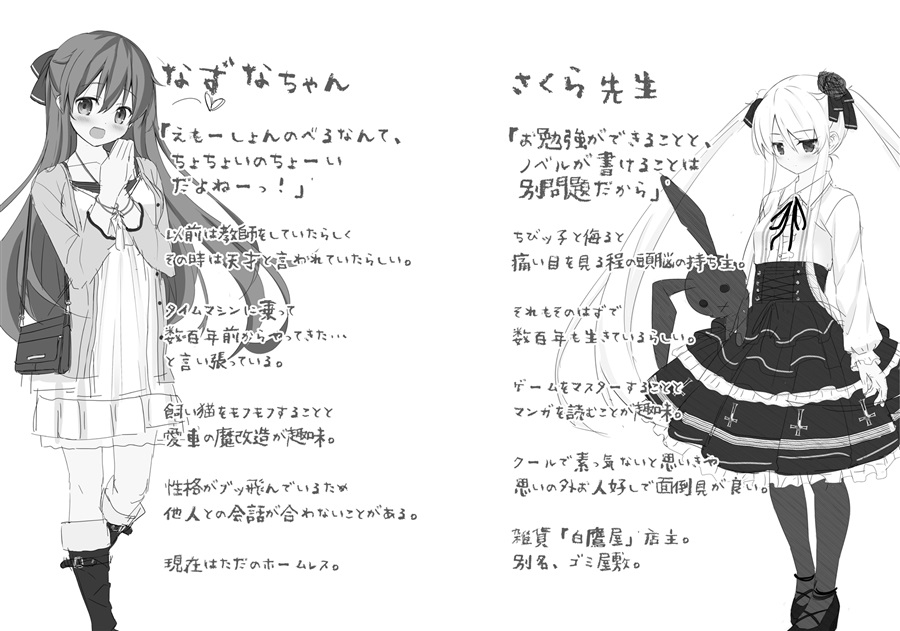 なずなちゃん
「えもーしょんのべるなんて、
ちょちょいのちょーい
だよねーっ！」
以前は教師をしていたらしく
その時は天才と言われていたらしい。
タイムマシンに乗って
数百年前からやってきた…
と言い張っている。
飼い猫をモフモフすることと
愛車の魔改造が趣味。
性格がブッ飛んでいるため
他人との会話が合わないことがある。
現在はただのホームレス。
さくら先生
「お勉強ができることと、
ノベルが書けることは
別問題だから」
ちびッ子と侮ると
痛い目を見る程の頭脳の持ち主。
それもそのはずで
数百年も生きているらしい。
ゲームをマスターすることと
マンガを読むことが趣味。
クールで素っ気ないと思いきや
思いの外お人好しで面倒見が良い。
雑貨「白鷹屋」店主。
別名、ゴミ屋敷。